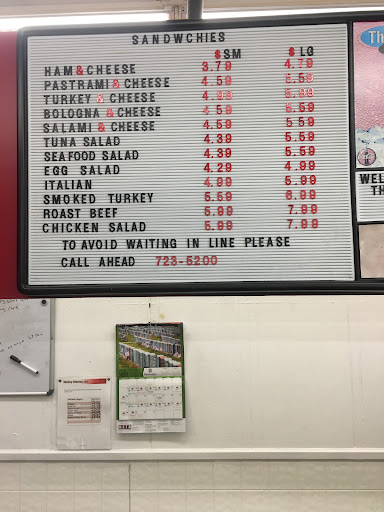 SANDWCHIES
$SM $LG
HAM&CHEESE 3.79 4.79
PASTRAMI&CHEESE 4.59 5.59
TURKEY & CHEESE 4.99 5.99
BOLOGNA &CHEESE 4.59 5.59
SALAMI & CHEESE 4.59 5.59
TUNA SALAD 4.39 5.59
SEAFOOD SALAD 4.39 5.59
EGG SALAD 4.29 4.99
ITALIAN 4.99 5.99
SMOKED TURKEY 5.59 6.99
ROAST BEEF 5.99 7.99
CHICKEN SALAD 5.99 7.99
TO AVOID WAITING IN LINE PLEASE
CALL AHEAD 723-5200
Th
WEL
TH